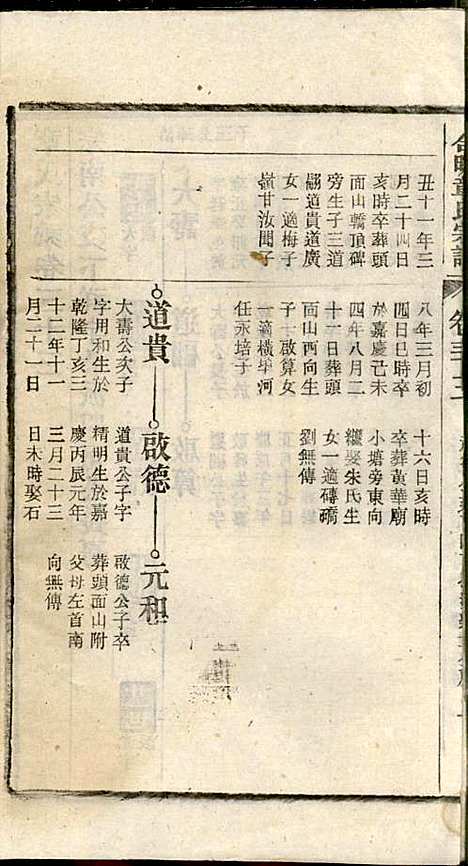 丑十一年三
月二十四日
亥時卒葬頭
面山轎頂碑
旁生子三道
翤道貴道廣
女一適梅子
嶺甘汝聞子
八年三月初
四日巳時卒
於嘉慶己未
四年八月二
十一日葬頭
面山西向生
子一啟算女
一適橫學河
任永培子
十六日亥時
卒葬黃華廟
小塘旁東向
繼娶朱氏生
女一適磚礄
劉無傳
道貴
大壽公次子
字用和生於
乾隆丁亥三
十二年十一
月二十一日
啟德
道貴公子字
精明生於嘉
慶丙辰元年
三月二十三
日未時娶石
元和
啟德公子卒
葬頭面山附
父母左首南
向無傳